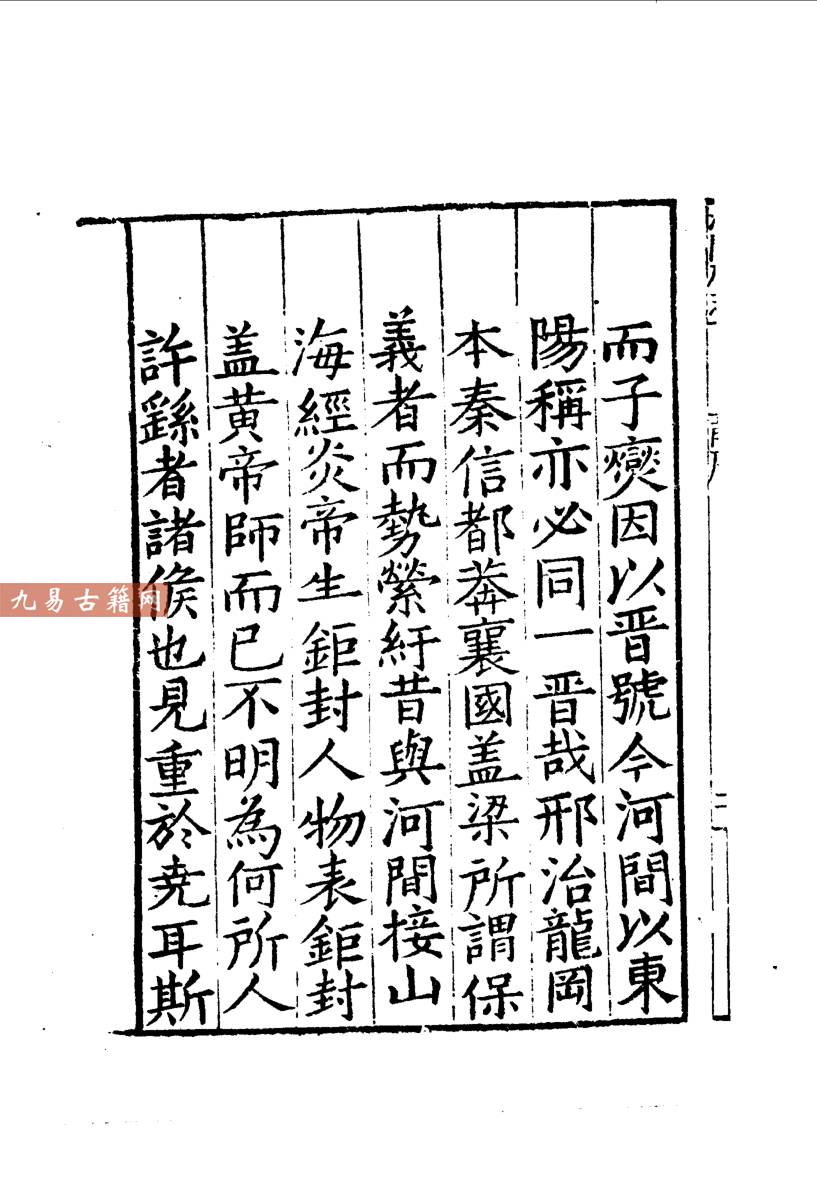 而子燮因以晋號今河間以東
陽稱亦必同一晋哉邢治龍岡
本秦信都莽襄國盖梁所謂保
義者而勢縈紆昔與河間接山
海經炎帝生鉅封人物表鉅封
盖黄帝師而已不明為何所人
許鷂者諸侯也見重於尭耳斯
九易古籍网